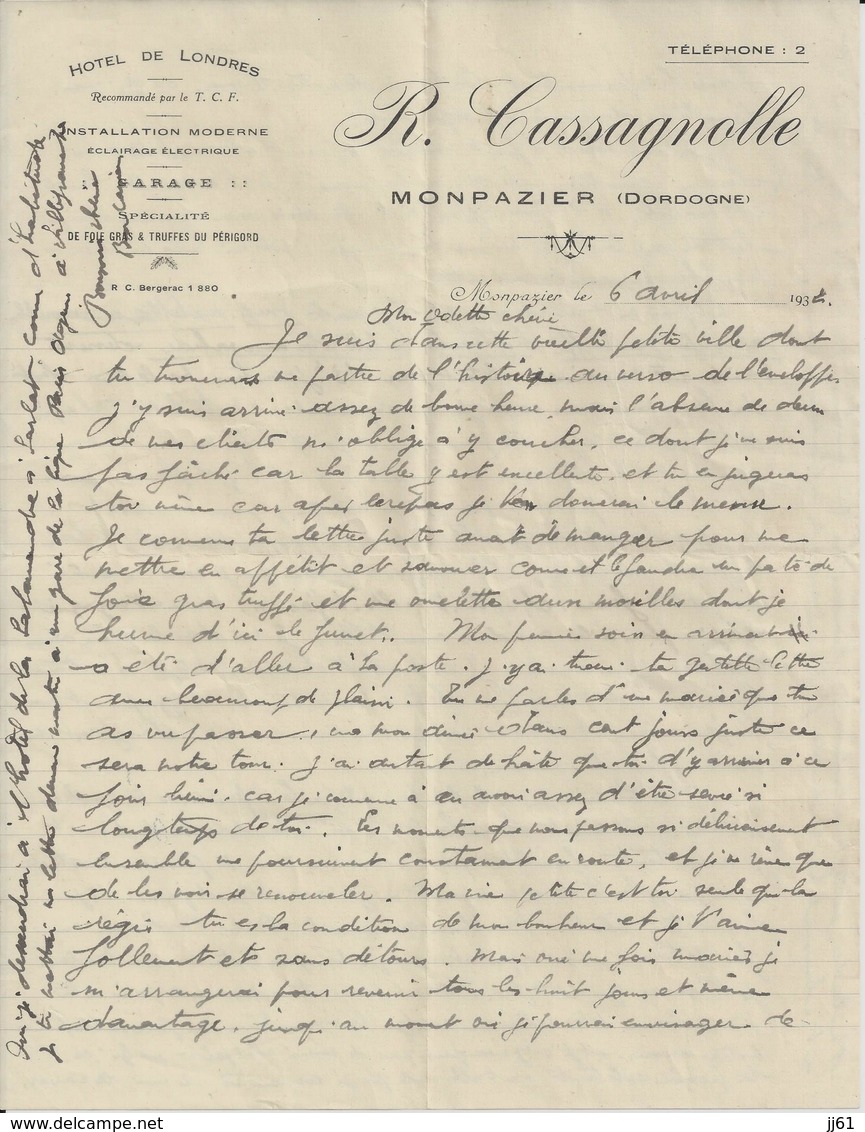 HOTEL DE LONDRES
Recommandé par le T. C. F.
INSTALLATION MODERNE
ÉCLAIRAGE ÉLECTRIQUE
:: GARAGE ::
SPÉCIALITÉ
DE FOIE GRAS & TRUFFES DU PÉRIGORD
R C. Bergerac 1 880
TÉLÉPHONE : 2
R. Cassagnolle
MONPAZIER (DORDOGNE)
Monpazier le 6 avril 1932.
Mon Odette chérie
Je suis dans cette vieille petite ville dont
tu trouveras une partie de l'histoire au verso de l'enveloppe
j'y suis arrivé assez de bonne heure mais l'absence de deux
de mes clients m'oblige à y coucher, ce dont je ne suis
pas fâché car la table y est excellente. et tu en jugeras
toi même car après le repas je t'en donnerai le menu.
Je commence ta lettre juste avant de manger pour me
mettre en appétit et savourer comme il le faudra un pâté de
foie gras truffé et une omelette aux morilles dont je
hume d'ici le fumet. Mon premier soin en arrivant
a été d'aller à la poste. j'y ai trouvé ta gentille lettre
avec beaucoup de plaisir. Tu me parles d'une mariée que tu
as vu passer, mon aimée dans cent jours juste ce
sera notre tour. j'ai autant de hâte que toi d'y arriver à ce
jour béni. car je commence à en avoir assez d'être sevré si
longtemps de toi. Les moments que nous passons si délicieusement
ensemble me poursuivent constamment en route, et je ne rêve que
de les voir se renouveler. Ma vie petite c'est toi seule qui la
régis tu es la condition de mon bonheur et je t'aime
follement et sans détours. Mais oui une fois mariés je
m'arrangerai pour revenir tous les huit jours et même
davantage. jusqu'au moment où je pourrai envisager de
Oui je descendrai à l'hôtel de la Salamandre à Sarlat comme d'habitude
je mettrai ma lettre demain matin à une gare de la ligne Paris Agen à Villefranche
Bonsoir chérie